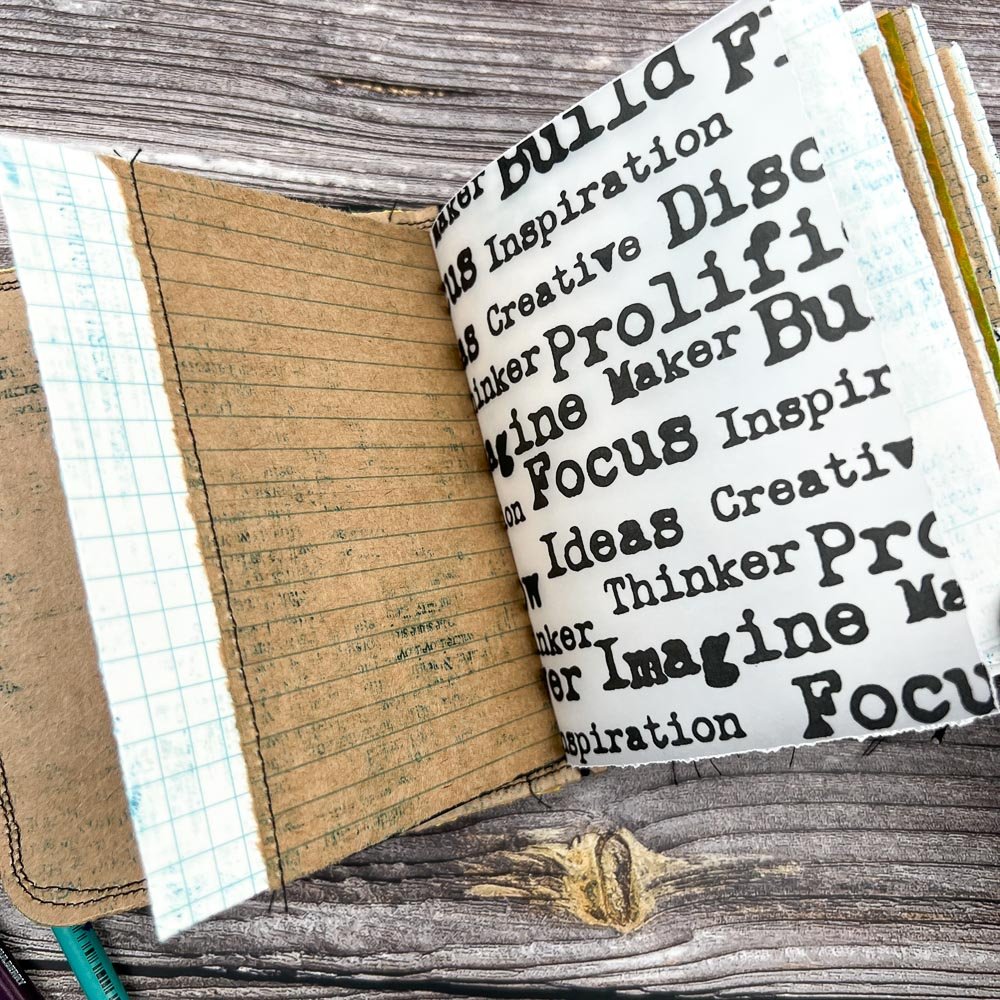 Maker Build F
Inspiration
us Creative Disc
as
inker Prolifi
agine Maker Bu
on Focus Inspir
Ideas Creativ
w Thinker Pro
nker
er Imagine Ma
nspiration Focu